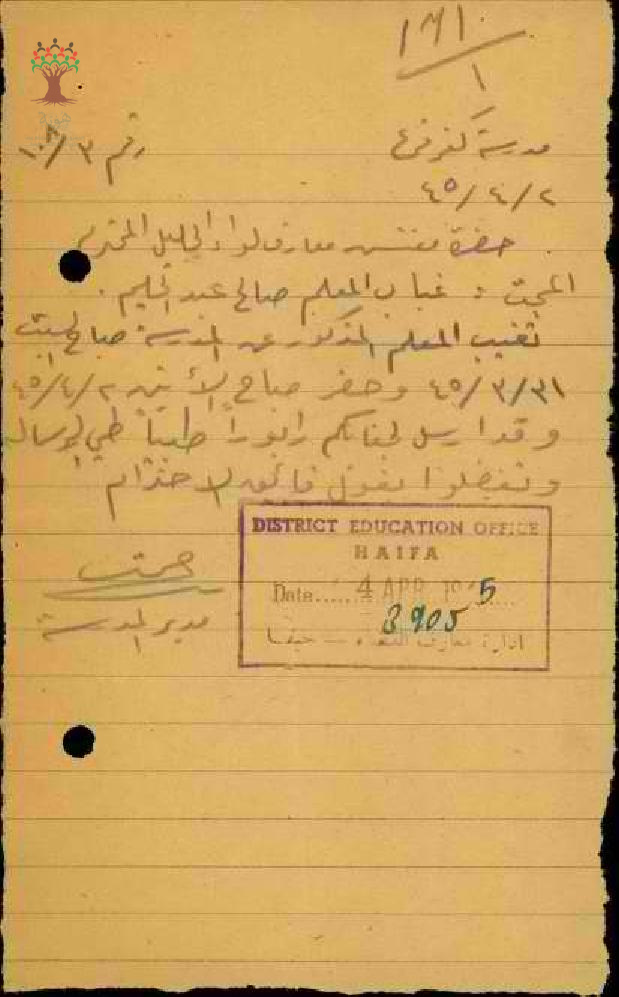 ١٦١٠
١
مدرسة كفر قرع
رقم ٣/١٠٨
٤٥/٤/٢
حضرة مفتش معارف لواء الجليل المحترم
المبحث : غياب المعلم صالح عبد الحليم .
تغيب المعلم المذكور عن المدرسة صباح السبت
٤٥/٣/٣١ وحضر صباح الاثنين ٤٥/٤/٢
وقد ارسل لجنابكم رابوراً طبياً طي الرسالة
وتفضلوا بقبول فائق الاحترام
مدير المدرسة
DISTRICT EDUCATION OFFICE
HAIFA
Date...... 4 APR 1945
3905
ادارة معارف اللواء — حيفا